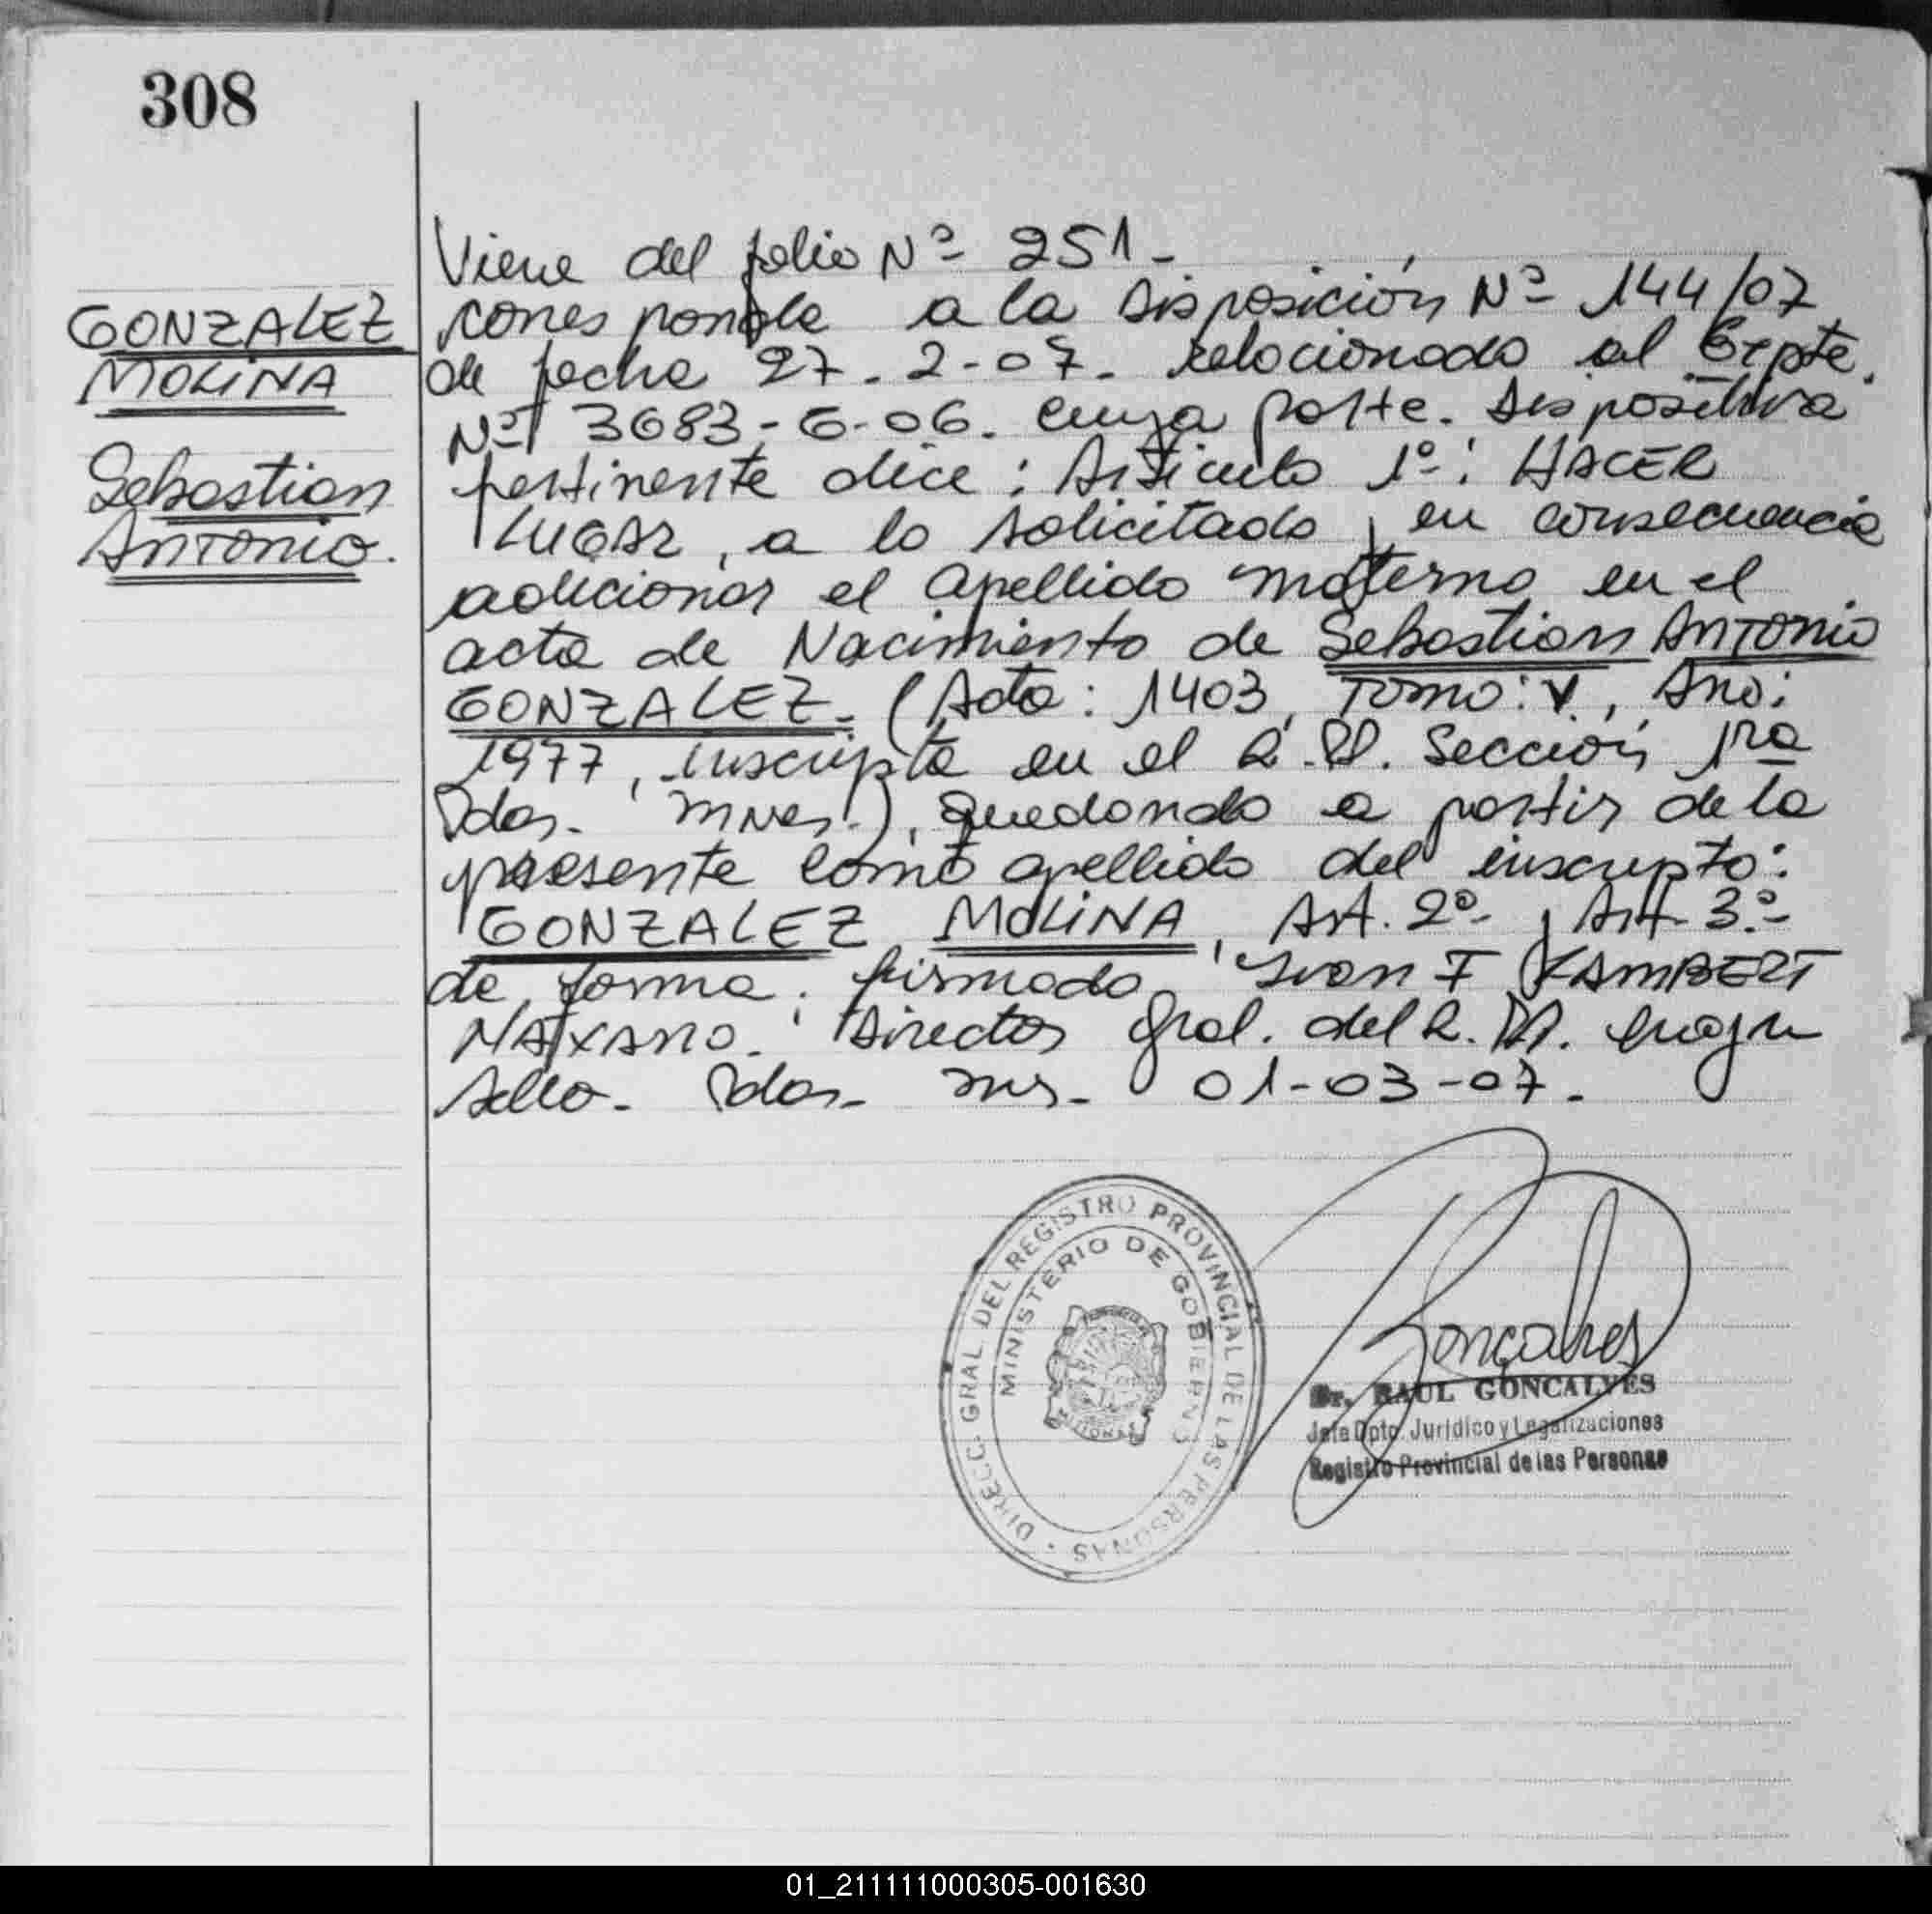 308
GONZALEZ
MOLINA
Sebastian
Antonio.
Viene del folio Nº 251-
corresponde a la Disposición Nº 144/07
de fecha 27-2-07. relacionado al Expte.
Nº 3683-G-06. cuya parte. Dispositiva
pertinente dice: Artículo 1º: HACER
LUGAR, a lo solicitado y en consecuencia
adicionar el apellido materno en el
acta de Nacimiento de Sebastian Antonio
GONZALEZ. (Acta: 1403, Tomo: V, Año:
1977, inscripta en el R.P. Sección 1ra
Pdas. Mnes.), quedando a partir de la
presente como apellido del inscripto:
GONZALEZ MOLINA, Art. 2º y Art. 3º
de forma. firmado, Ivan F LAMBERT
Director Gral. del R.P. hay un
sello. Pdas. Mns. 01-03-07.
DIRECC. GRAL. DEL REGISTRO PROVINCIAL DE LAS PERSONAS
MINISTERIO DE GOBIERNO
MISIONES
Goncalves
Dr. RAUL GONCALVES
Jefe Dpto. Jurídico y Legalizaciones
Registro Provincial de las Personas
01_211111000305-001630